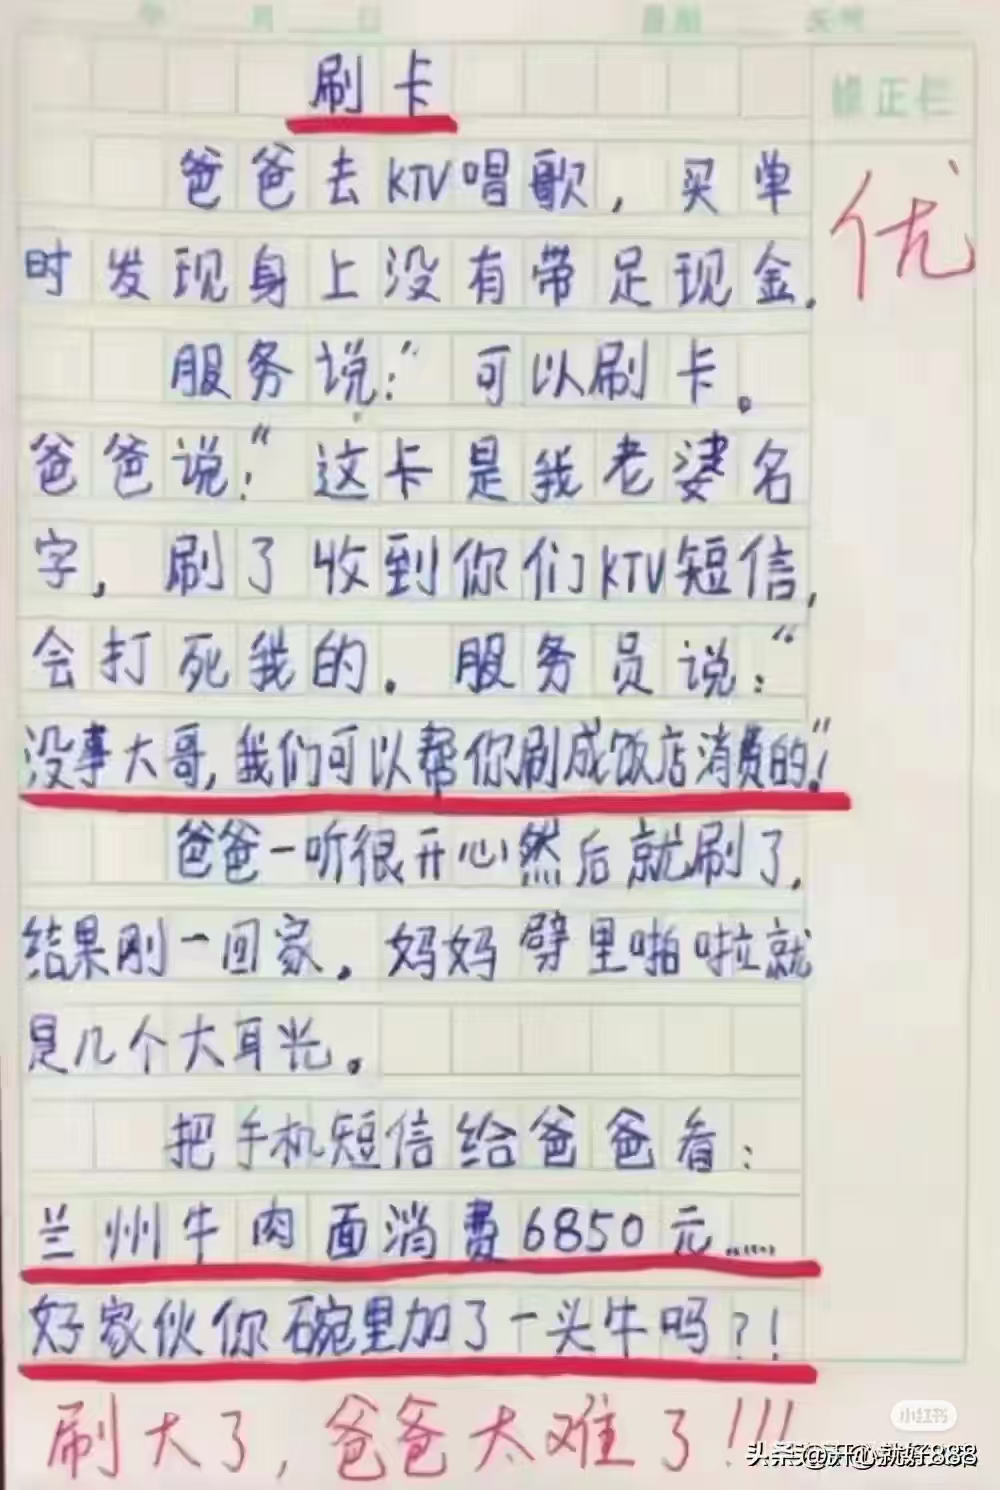 年 月 日 星期 天气
刷卡
修正栏
爸爸去KTV唱歌，买单
优
时发现身上没有带足现金.
服务说："可以刷卡。
爸爸说："这卡是我老婆名
字，刷了收到你们KTV短信,
会打死我的.服务员说："
没事大哥,我们可以帮你刷成饭店消费的!"
爸爸一听很开心然后就刷了,
结果刚一回家.妈妈劈里啪啦就
是几个大耳光。
把手机短信给爸爸看：
兰州牛肉面消费6850元......
好家伙你碗里加了一头牛吗?!
刷大了,爸爸太难了!!!
小红书
头条@开心就好888